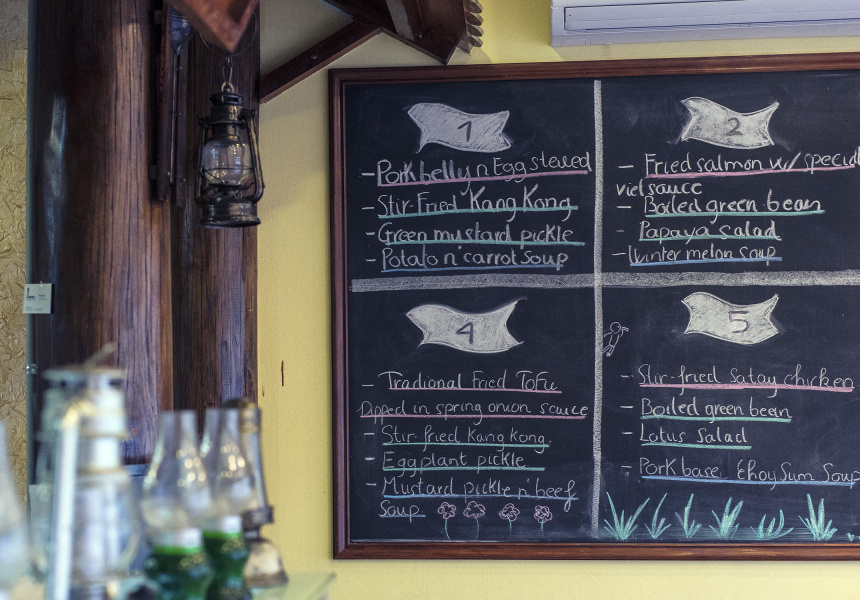 1
- Pork belly n Egg stewed
- Stir-Fried Kang Kong
- Green mustard pickle
- Potato n' carrot Soup
2
- Fried salmon w/ special
viet sauce
- Boiled green bean
- Papaya salad
- Winter melon soup
4
- Tradional Fried Tofu
Dipped in spring onion sauce
- Stir-fried kang kong
- Eggplant pickle
- Mustard pickle n' beef
Soup
5
- Stir-fried Satay chicken
- Boiled green bean
- Lotus Salad
- Pork base Choy Sum Soup